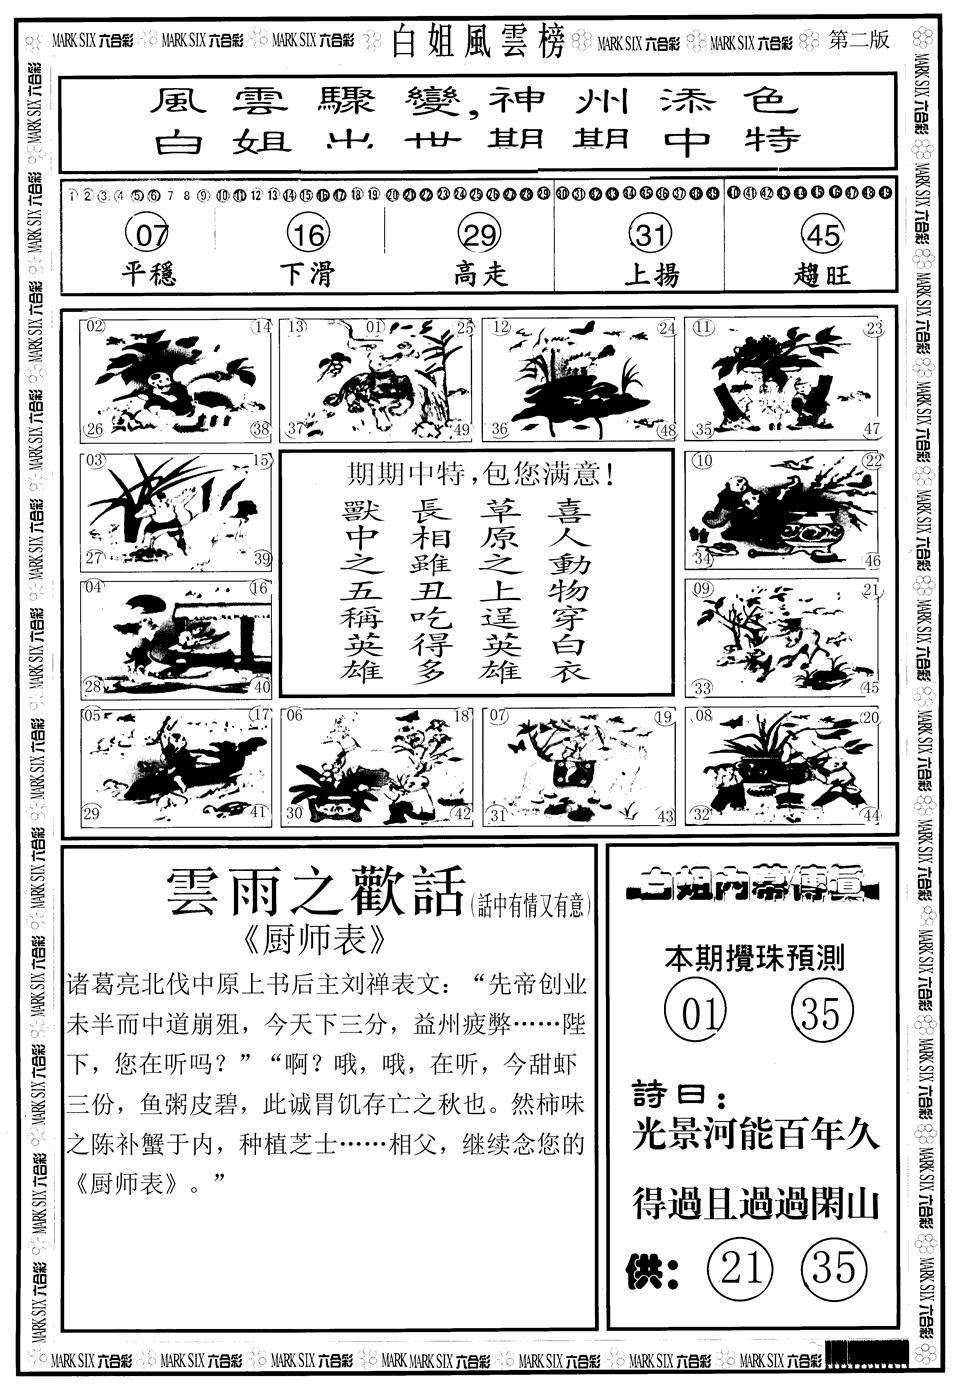 MARK SIX 六合彩 MARK SIX 六合彩 MARK SIX 六合彩 白姐風雲榜 MARK SIX 六合彩 MARK SIX 六合彩 第二版
風雲驟變,神州添色
白姐出世期期中特
1 2 3 4 5 6 7 8 9 10 11 12 13 14 15 16 17 18 19 20 21 22 23 24 25 26 27 28 29 30 31 32 33 34 35 36 37 38 39 40 41 42 43 44 45 46 47 48 49
07 16 29 31 45
平穩 下滑 高走 上揚 趨旺
02 14 13 01 25 12 24 11 23
26 38 37 49 36 48 35 47
03 15 10 22
27 39 34 46
04 16 09 21
28 40 33 45
05 17 06 18 07 19 08 20
29 41 30 42 31 43 32 44
期期中特,包您满意!
喜人動物穿白衣
草原之上逞英雄
長相雖丑吃得多
獸中之五稱英雄
雲雨之歡話(話中有情又有意)
《厨师表》
诸葛亮北伐中原上书后主刘禅表文：“先帝创业
未半而中道崩殂，今天下三分，益州疲弊……陛
下，您在听吗？”“啊？哦，哦，在听，今甜虾
三份，鱼粥皮碧，此诚胃饥存亡之秋也。然柿味
之陈补蟹于内，种植芝士……相父，继续念您的
《厨师表》。”
白姐内幕傳真
本期攪珠預測
01 35
詩曰：
光景河能百年久
得過且過過閑山
供： 21 35
MARK SIX 六合彩 MARK SIX 六合彩 MARK SIX 六合彩 MARK MARK SIX 六合彩 MARK SIX 六合彩 MARK SIX 六合彩 MARK SIX 六合彩